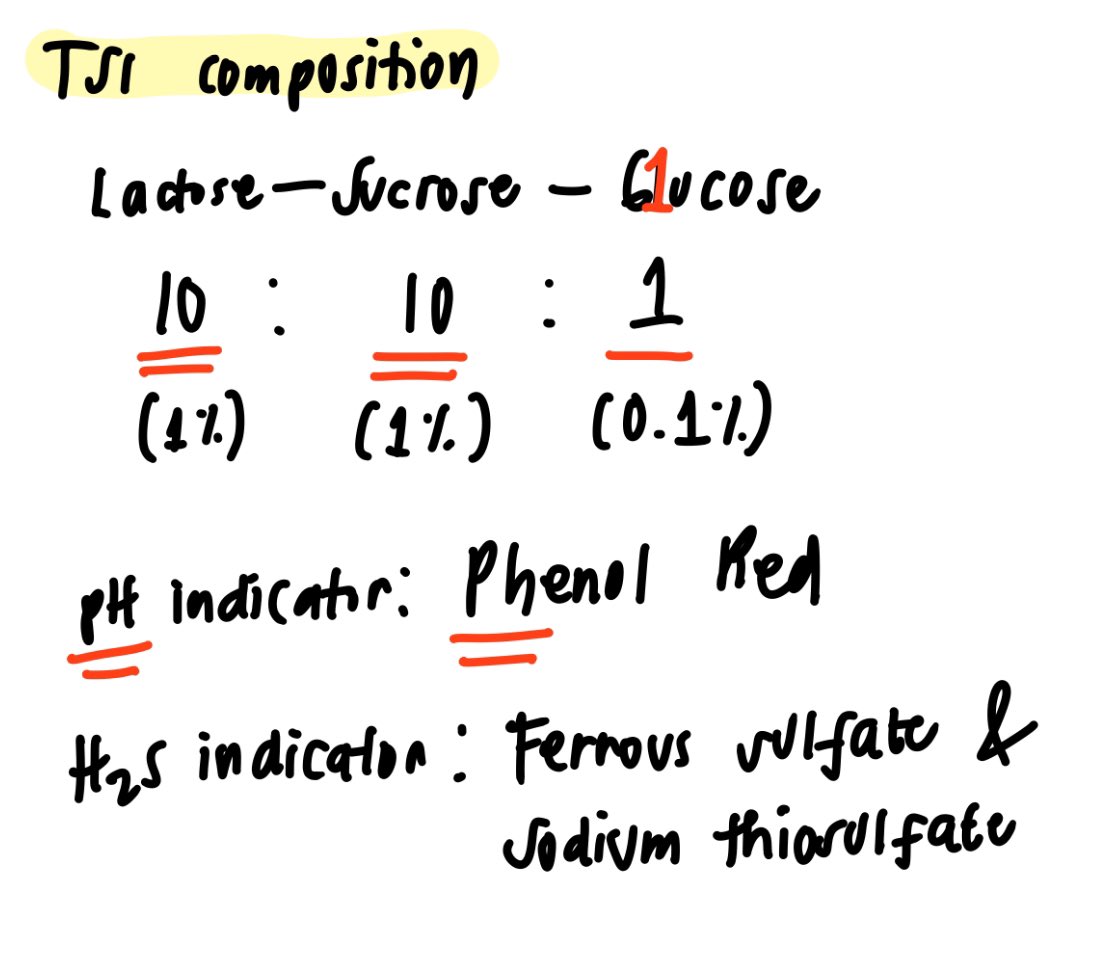 TSI composition
Lactose - Sucrose - G1ucose
10 : 10 : 1
(1%) (1%) (0.1%)
pH indicator: Phenol Red
H₂S indicator: Ferrous sulfate &
Sodium thiosulfate